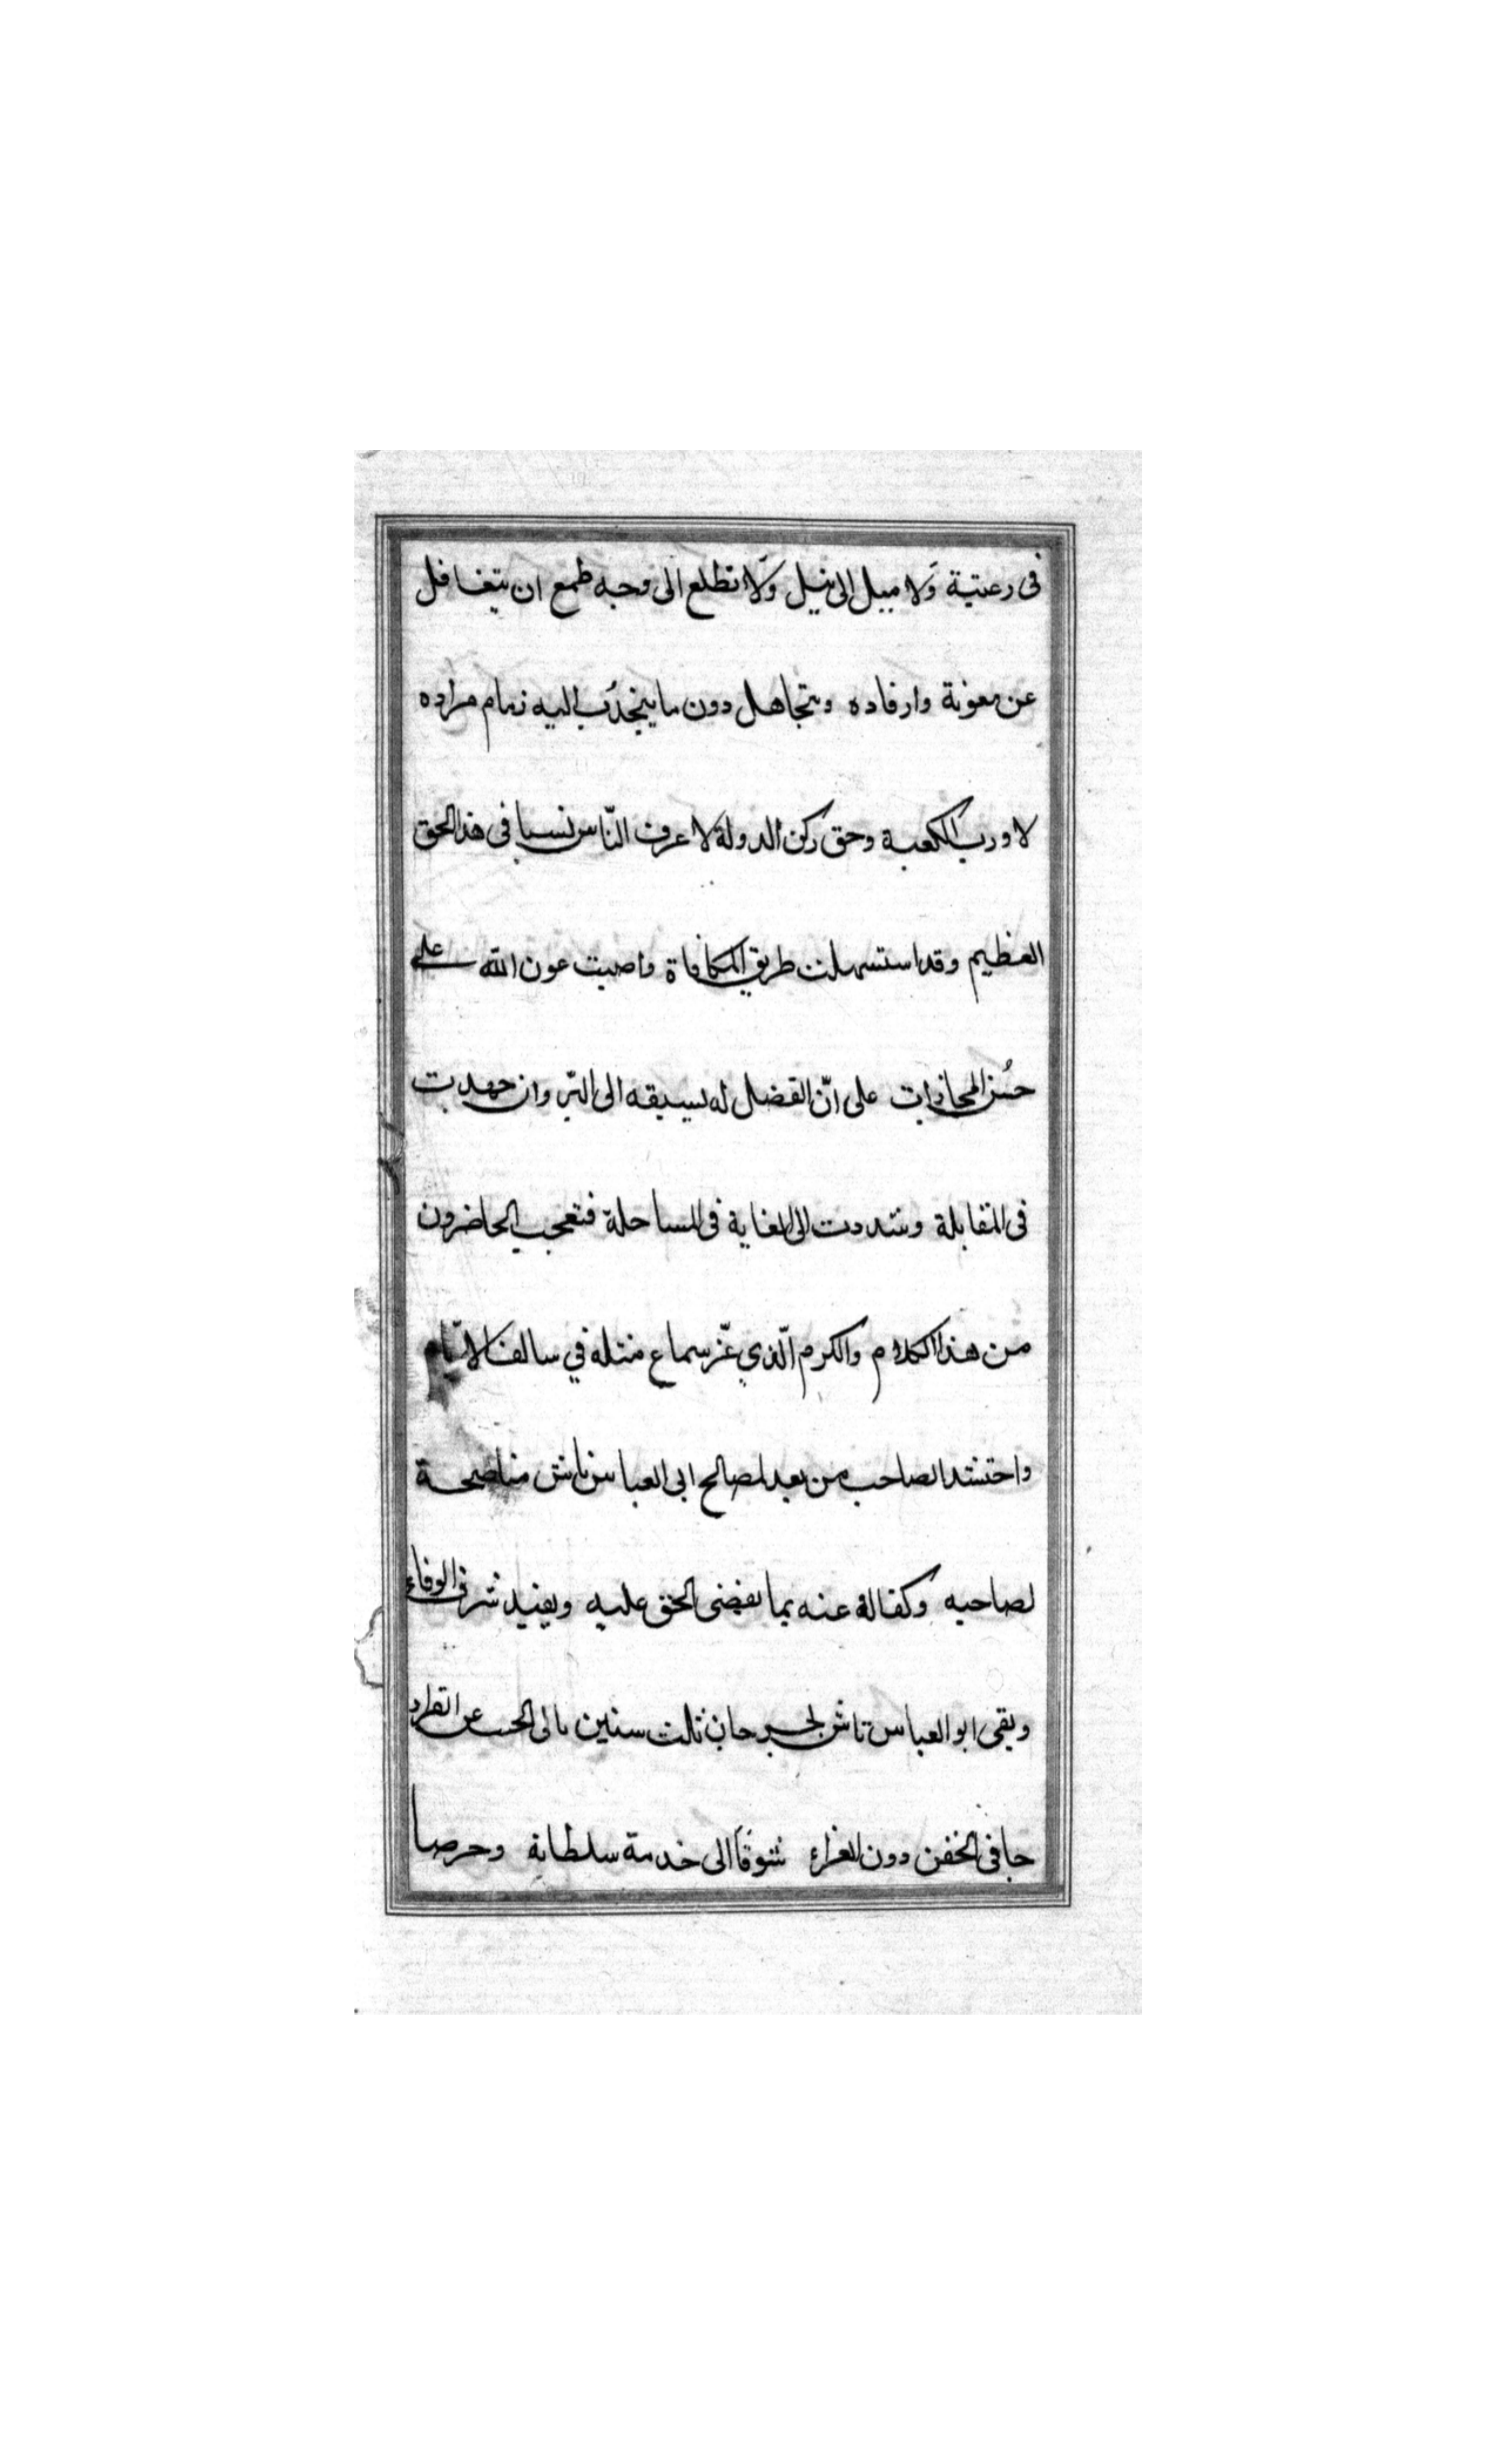 فى رعتية وَلا ميل الى نيل وَلا تطلع الى وجه طمع ان يتغافل
عن معونة وارفاده وتتجاهل دون ما ينجذب اليه زمام مراده
لا ورب الكعبة وحق ركن الدولة لا عرف النّاس نسبا فى هذا الحق
العظيم وقد استسهلت طريق المكافاة واصبت عون الله على
حسُن المجازات على انّ الفضل له لسبقه الى البّر وان جهدت
فى المقابلة وشددت الى الغاية فى المساجلة فتعجب الحاضرون
من هذا الكلام والكرم الّذي عّز سماع مثله في سالف الايّام
واحتشد الصاحب من بعد لمصالح ابى العباس تاش مناصحة
لصاحبه وكفالة عنه بما يقضى الحق عليه ويفيد شرف الوفاء
وبقى ابو العباس تاش بجرجان ثلث سنين
جافى الجفن دون الغرار شوقاً الى خدمة سلطانة وحرصا